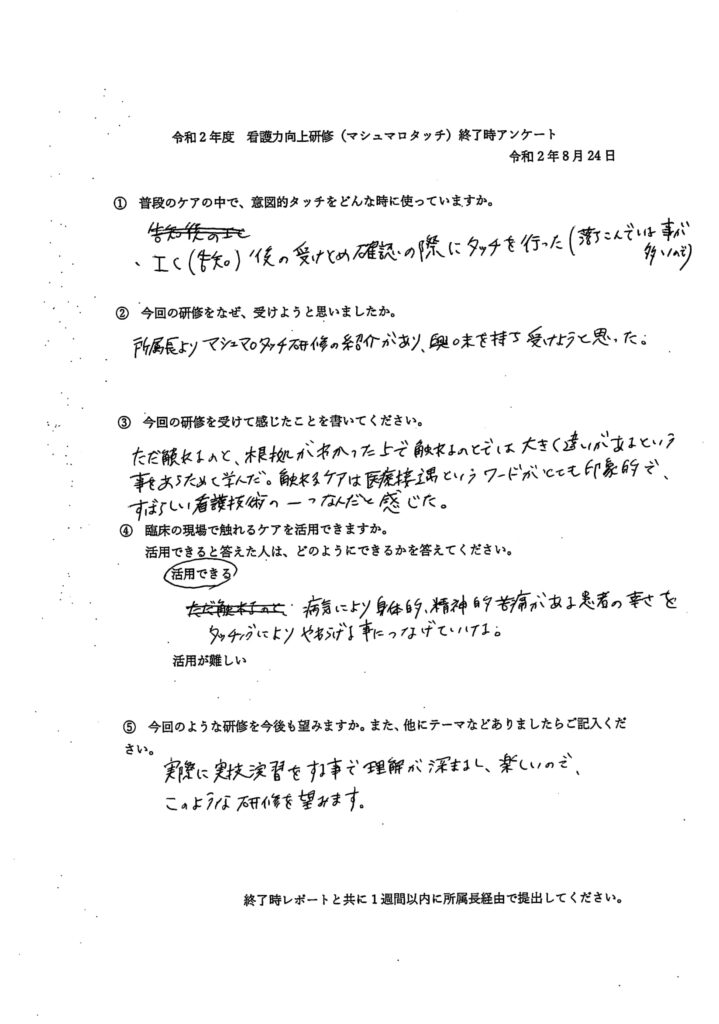 令和2年度　看護力向上研修（マシュマロタッチ）終了時アンケート
令和2年8月24日
①　普段のケアの中で、意図的タッチをどんな時に使っていますか。
告知後のIC
、IC(告知)後の受けとめ確認の際にタッチを行った(落ちこんでいる事が
多いので)
②　今回の研修をなぜ、受けようと思いましたか。
所属長よりマシュマロタッチ研修の紹介があり、興味を持ち受けようと思った。
③　今回の研修を受けて感じたことを書いてください。
ただ触れるのと、根拠がわかった上で触れるのとでは大きく違いがあるという
事をあらためて学んだ。触れるケアは医療接遇というワードがとても印象的で、
すばらしい看護技術の一つなんだと感じた。
④　臨床の現場で触れるケアを活用できますか。
活用できると答えた人は、どのようにできるかを答えてください。
活用できる
ただ触れるのと、病気により身体的、精神的苦痛がある患者の辛さを
タッチングによりやわらげる事につなげていける。
活用が難しい
⑤　今回のような研修を今後も望みますか。また、他にテーマなどありましたらご記入くだ
さい。
実際に実技演習をする事で理解が深まるし、楽しいので、
このような研修を望みます。
終了時レポートと共に1週間以内に所属長経由で提出してください。